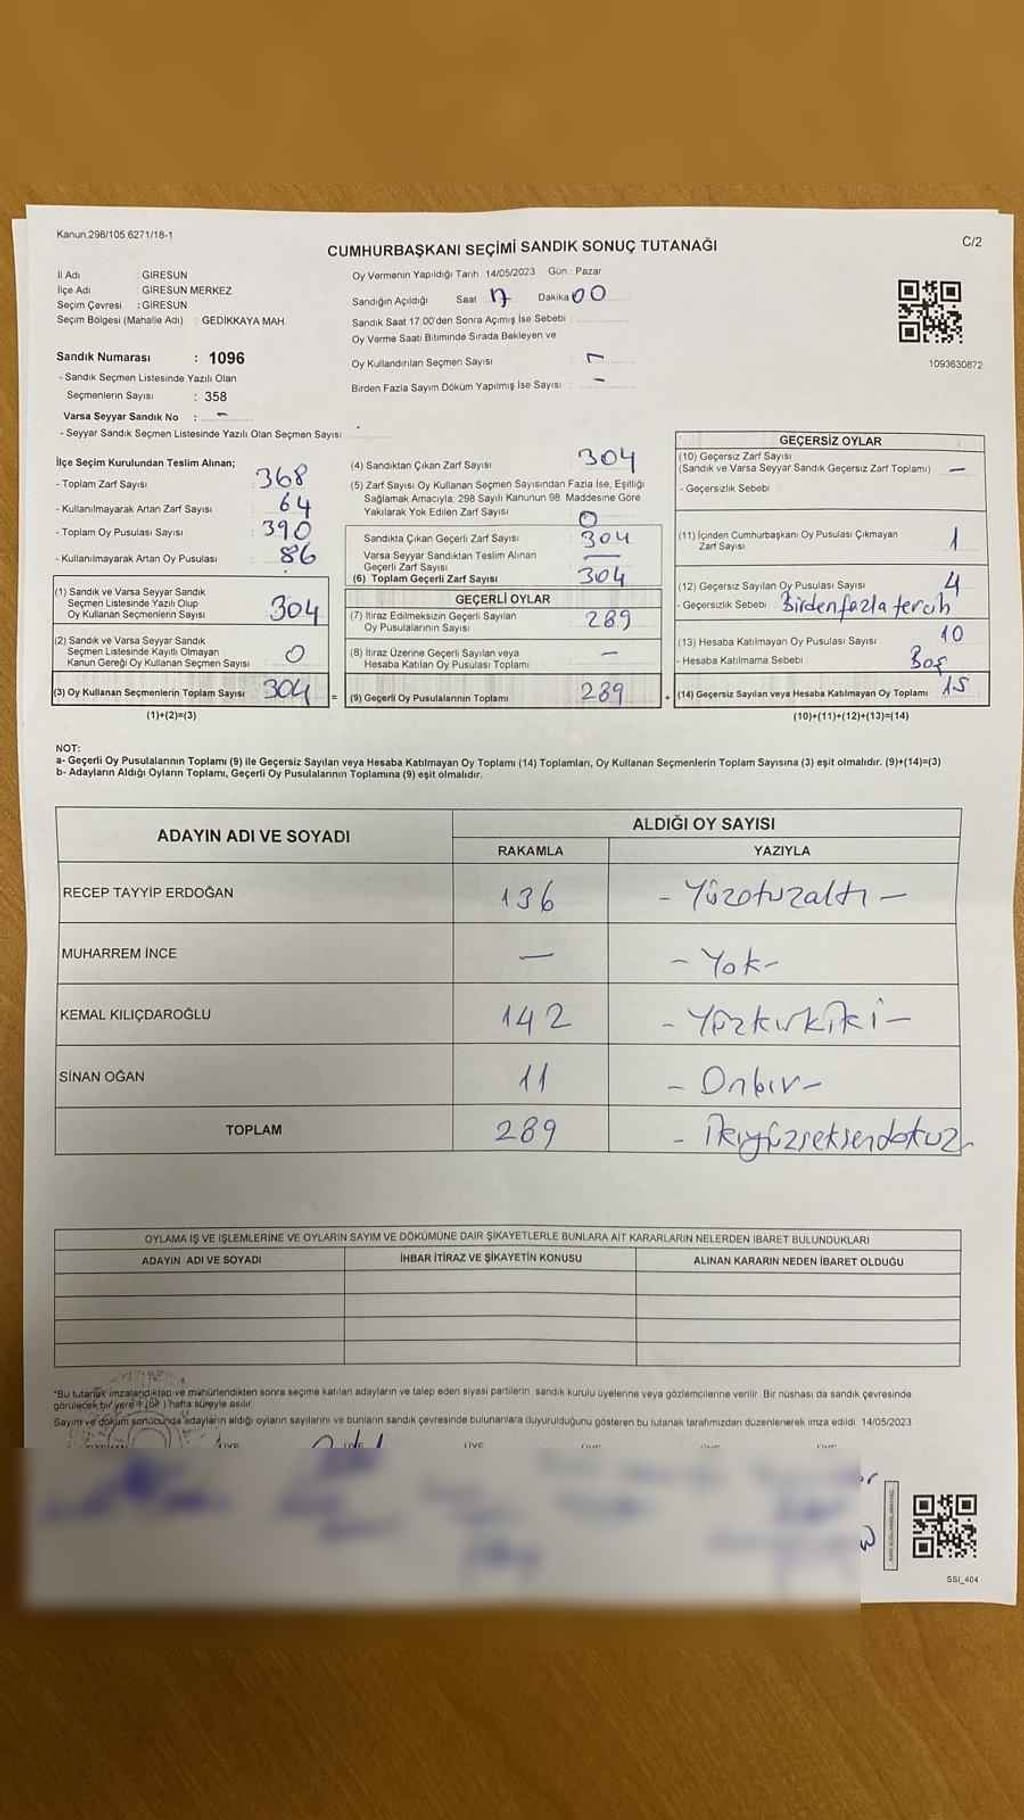 Kanun.298/105 6271/18-1
CUMHURBAŞKANI SEÇİMİ SANDIK SONUÇ TUTANAĞI
C/2
İl Adı : GİRESUN
İlçe Adı : GİRESUN MERKEZ
Seçim Çevresi : GİRESUN
Seçim Bölgesi (Mahalle Adı) : GEDİKKAYA MAH.
Oy Vermenin Yapıldığı Tarih : 14/05/2023 Gün : Pazar
Sandığın Açıldığı Saat 17 Dakika 00
Sandık Saat 17.00'den Sonra Açımış İse Sebebi :
Oy Verme Saati Bitiminde Sırada Bekleyen ve
Oy Kullandırılan Seçmen Sayısı : -
Birden Fazla Sayım Döküm Yapılmış İse Sayısı : -
1093630872
Sandık Numarası : 1096
- Sandık Seçmen Listesinde Yazılı Olan
Seçmenlerin Sayısı : 358
Varsa Seyyar Sandık No : -
- Seyyar Sandık Seçmen Listesinde Yazılı Olan Seçmen Sayısı :
İlçe Seçim Kurulundan Teslim Alınan;
- Toplam Zarf Sayısı : 368
- Kullanılmayarak Artan Zarf Sayısı : 64
- Toplam Oy Pusulası Sayısı : 390
- Kullanılmayarak Artan Oy Pusulası : 86
(1) Sandık ve Varsa Seyyar Sandık
Seçmen Listesinde Yazılı Olup
Oy Kullanan Seçmenlerin Sayısı 304
(2) Sandık ve Varsa Seyyar Sandık
Seçmen Listesinde Kayıtlı Olmayan
Kanun Gereği Oy Kullanan Seçmen Sayısı 0
(3) Oy Kullanan Seçmenlerin Toplam Sayısı 304 =
(1)+(2)=(3)
(4) Sandıktan Çıkan Zarf Sayısı 304
(5) Zarf Sayısı Oy Kullanan Seçmen Sayısından Fazla İse, Eşitliği
Sağlamak Amacıyla, 298 Sayılı Kanunun 98. Maddesine Göre
Yakılarak Yok Edilen Zarf Sayısı 0
Sandıkta Çıkan Geçerli Zarf Sayısı 304
Varsa Seyyar Sandıktan Teslim Alınan
Geçerli Zarf Sayısı —
(6) Toplam Geçerli Zarf Sayısı 304
GEÇERLİ OYLAR
(7) İtiraz Edilmeksizin Geçerli Sayılan
Oy Pusulalarının Sayısı 289
(8) İtiraz Üzerine Geçerli Sayılan veya
Hesaba Katılan Oy Pusulası Toplamı -
(9) Geçerli Oy Pusulalarının Toplamı 289 +
GEÇERSİZ OYLAR
(10) Geçersiz Zarf Sayısı
(Sandık ve Varsa Seyyar Sandık Geçersiz Zarf Toplamı) -
- Geçersizlik Sebebi
(11) İçinden Cumhurbaşkanı Oy Pusulası Çıkmayan
Zarf Sayısı 1
(12) Geçersiz Sayılan Oy Pusulası Sayısı 4
- Geçersizlik Sebebi Birdenfazla tercih
(13) Hesaba Katılmayan Oy Pusulası Sayısı 10
- Hesaba Katılmama Sebebi Boş
(14) Geçersiz Sayılan veya Hesaba Katılmayan Oy Toplamı 15
(10)+(11)+(12)+(13)=(14)
NOT:
a- Geçerli Oy Pusulalarının Toplamı (9) ile Geçersiz Sayılan veya Hesaba Katılmayan Oy Toplamı (14) Toplamları, Oy Kullanan Seçmenlerin Toplam Sayısına (3) eşit olmalıdır. (9)+(14)=(3)
b- Adayların Aldığı Oyların Toplamı, Geçerli Oy Pusulalarının Toplamına (9) eşit olmalıdır.
ADAYIN ADI VE SOYADI
ALDIĞI OY SAYISI
RAKAMLA YAZIYLA
RECEP TAYYİP ERDOĞAN 136 - Yüzotuzaltı -
MUHARREM İNCE — - Yok -
KEMAL KILIÇDAROĞLU 142 - Yüzkırkiki -
SİNAN OĞAN 11 - Onbir -
TOPLAM 289 - İkiyüzseksendokuz -
OYLAMA İŞ VE İŞLEMLERİNE VE OYLARIN SAYIM VE DÖKÜMÜNE DAİR ŞİKAYETLERLE BUNLARA AİT KARARLARIN NELERDEN İBARET BULUNDUKLARI
ADAYIN ADI VE SOYADI İHBAR İTİRAZ VE ŞİKAYETİN KONUSU ALINAN KARARIN NEDEN İBARET OLDUĞU
*Bu tutanak imzalandıktan ve mühürlendikten sonra seçime katılan adayların ve talep eden siyasi partilerin, sandık kurulu üyelerine veya gözlemcilerine verilir. Bir nüshası da sandık çevresinde
görülecek bir yere 1 (bir) hafta süreyle asılır.
Sayım ve döküm sonucunda adayların aldığı oyların sayılarını ve bunların sandık çevresinde bulunanlara duyurulduğunu gösteren bu tutanak tarafımızdan düzenlenerek imza edildi. 14/05/2023
SSI_404